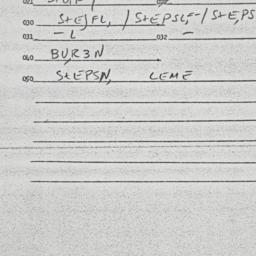 030 StEJFL, / StEPSLF-/StEPS
031 -L 032 -
040 BUR3N
050 StEPSN, LEME